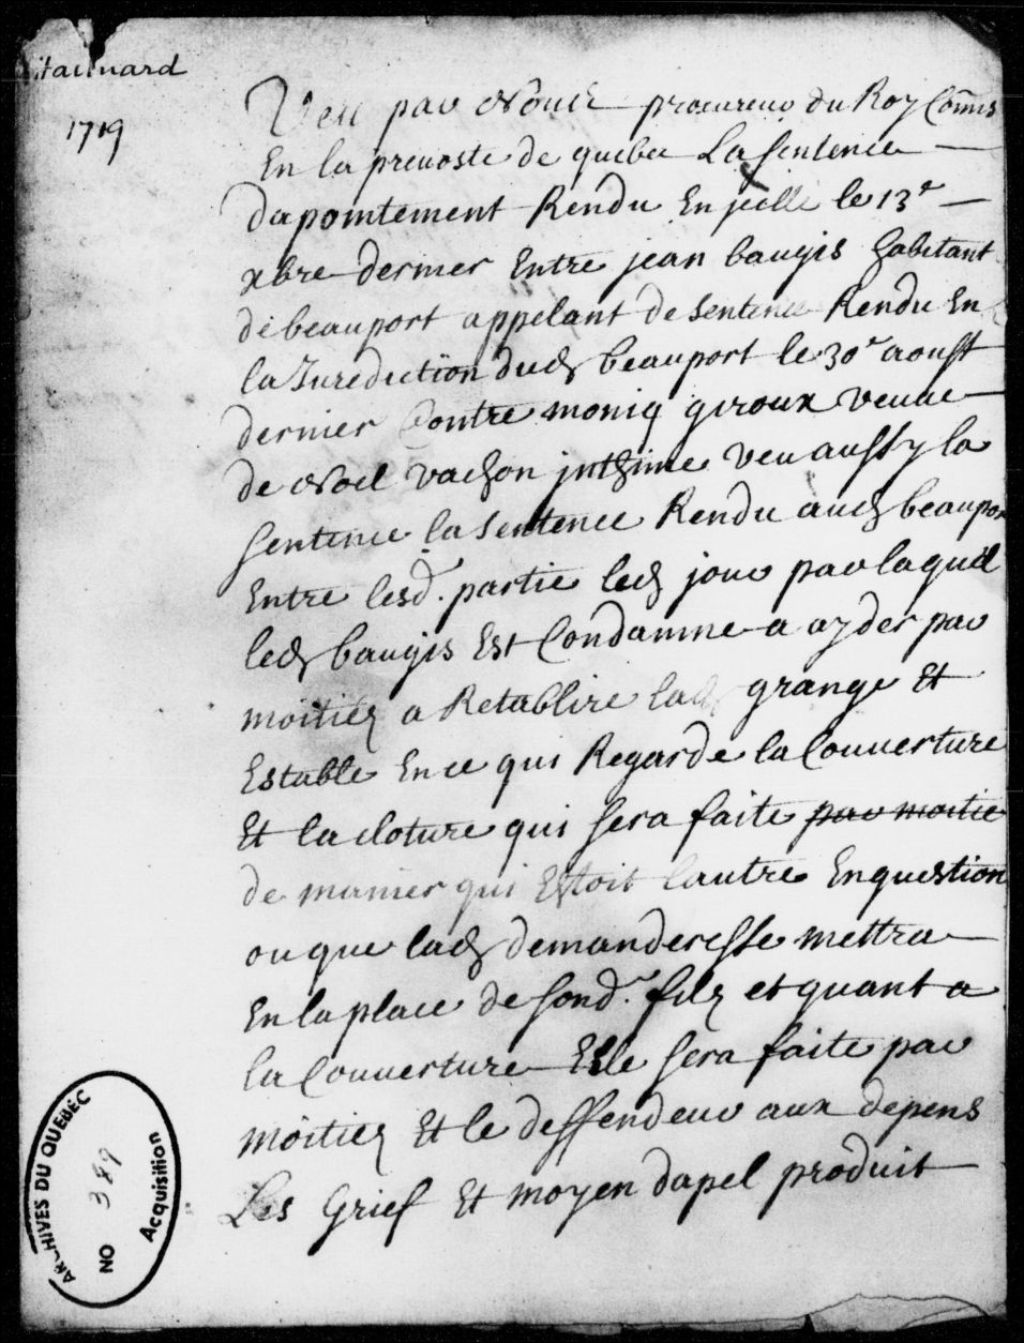 1719
Veu par Nous procureur du Roy Comis
En la preuoste de quebec La sentence
dapointement Rendu En jcelle le 13e
xbre dernier Entre jean baugis habitant
de beauport appelant de sentence Rendu En
la Juridiction dud beauport le 30e aoust
dernier Contre moniq giroux veuue
de Noel vachon jnthimé veu aussy la
sentence la sentence Rendu aud beauport
Entre lesd. partie led jour par laquel
led baugis Est Condamne a ayder par
moitiez a Retablire lad grange Et
Estable En ce qui Regarde la Couuerture
Et la cloture qui sera faite par moitie
de manier qui Estoit lautre En question
ou que lad demanderesse mettra
En la place de sond. filz et quant a
la Couuerture Elle sera faite par
moitiez Et le deffendeur aux depens
Les Grief Et moyen dapel produit
ARCHIVES DU QUÉBEC
NO 389
Acquisition